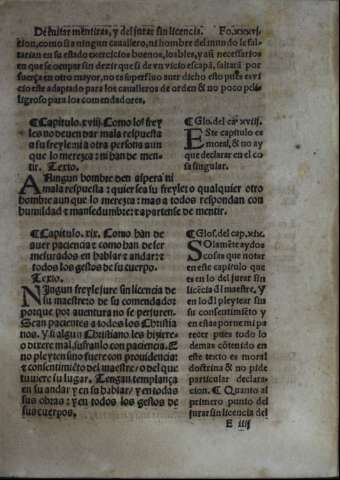 De euitar mentiras, y del jurar sin licencia. Fo.xxxvj.
cion, como si a ningun cauallero, ni hombre del mundo le fal-
tarian en su estado exercicios buenos, loables, y aũ necessarios
en que se ocupar sin dezir que si de vn vicio escapã, saltará por
fuerça en otro mayor, no es superfluo auer dicho esto pues es vi
cio este adaptado para los caualleros de orden & no poco peli-
grosso para los comendadores.
¶Capitulo.xviij. Como los frey
les no deuen dar mala respuesta
a su freyle ni a otra persona aun
que lo merezca: ni han de men-
tir. Texto.
Ningun hombre den aspera ni
mala respuesta: quier sea su freyle; o qualquier otro
hombre aun que lo merezca: mas a todos respondan con
humildad & mansedumbre: & apartense de mentir.
¶Glos. del capº xviij.
Este capitulo es
moral, & no ay
que declarar en el co
sa singular.
¶Capitulo. xix. Como han de
auer paciencia & como han de ser
mesurados en hablar & andar: &
todos los gestos de su cuerpo.
Texto.
Ningun freyle jure sin licencia de
su maestre o de su comendador:
porque por auentura no se perjuren.
Sean pacientes a todos los Christia
nos. Y si algun Christiano les hiziere
o dixere mal, sufranlo con paciencia. E
no pleyteen sino fuere con prouidencia:
& consentimiẽto del maestre / o del que
tuuiere su lugar. Tengan templança
en su andar y en su hablar / y en todas
sus obras: y en todos los gestos de
sus cuerpos.
¶Glos. del cap. xix.
Solamẽte ay dos
cosas que notar
en este capitulo que
es en lo del jurar sin
licẽcia dl maestre. Y
en lo dl pleytear sin
su consentimiẽto y
en estas por ne mi pa
recer pues todo lo
demas cõtenido en
este texto es moral
doctrina & no pide
particular declara-
cion. ¶ Quanto al
primero punto del
jurar sin licencia del
E iiij